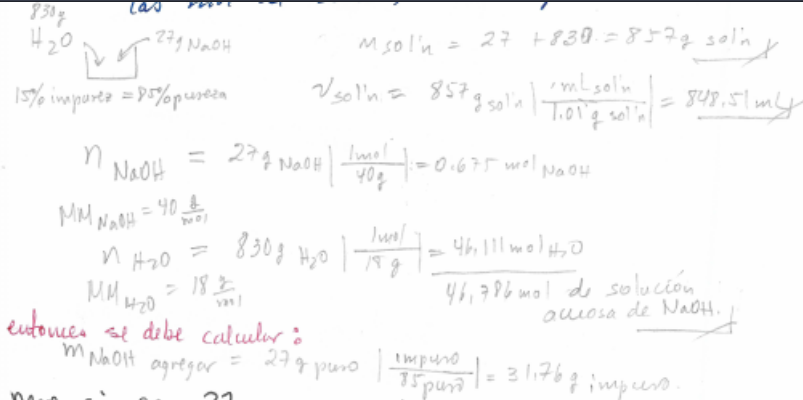 las mol
830g
H2O 27g NaOH
15% impurez = 85% pureza
m sol'n = 27 + 830 = 857g sol'n
V sol'n = 857 g sol'n | 1 mL sol'n / 1.01 g sol'n | = 848.51 mL
n NaOH = 27g NaOH | 1mol / 40g | = 0.675 mol NaOH
MM NaOH = 40 g/mol
n H2O = 830g H2O | 1mol / 18 g | = 46,111 mol H2O
MM H2O = 18 g/mol
46,786 mol de solución
acuosa de NaOH.
entonces se debe calcular:
m NaOH agregar = 27 g puro | impuro / 85 puro | = 31,76 g impuro.